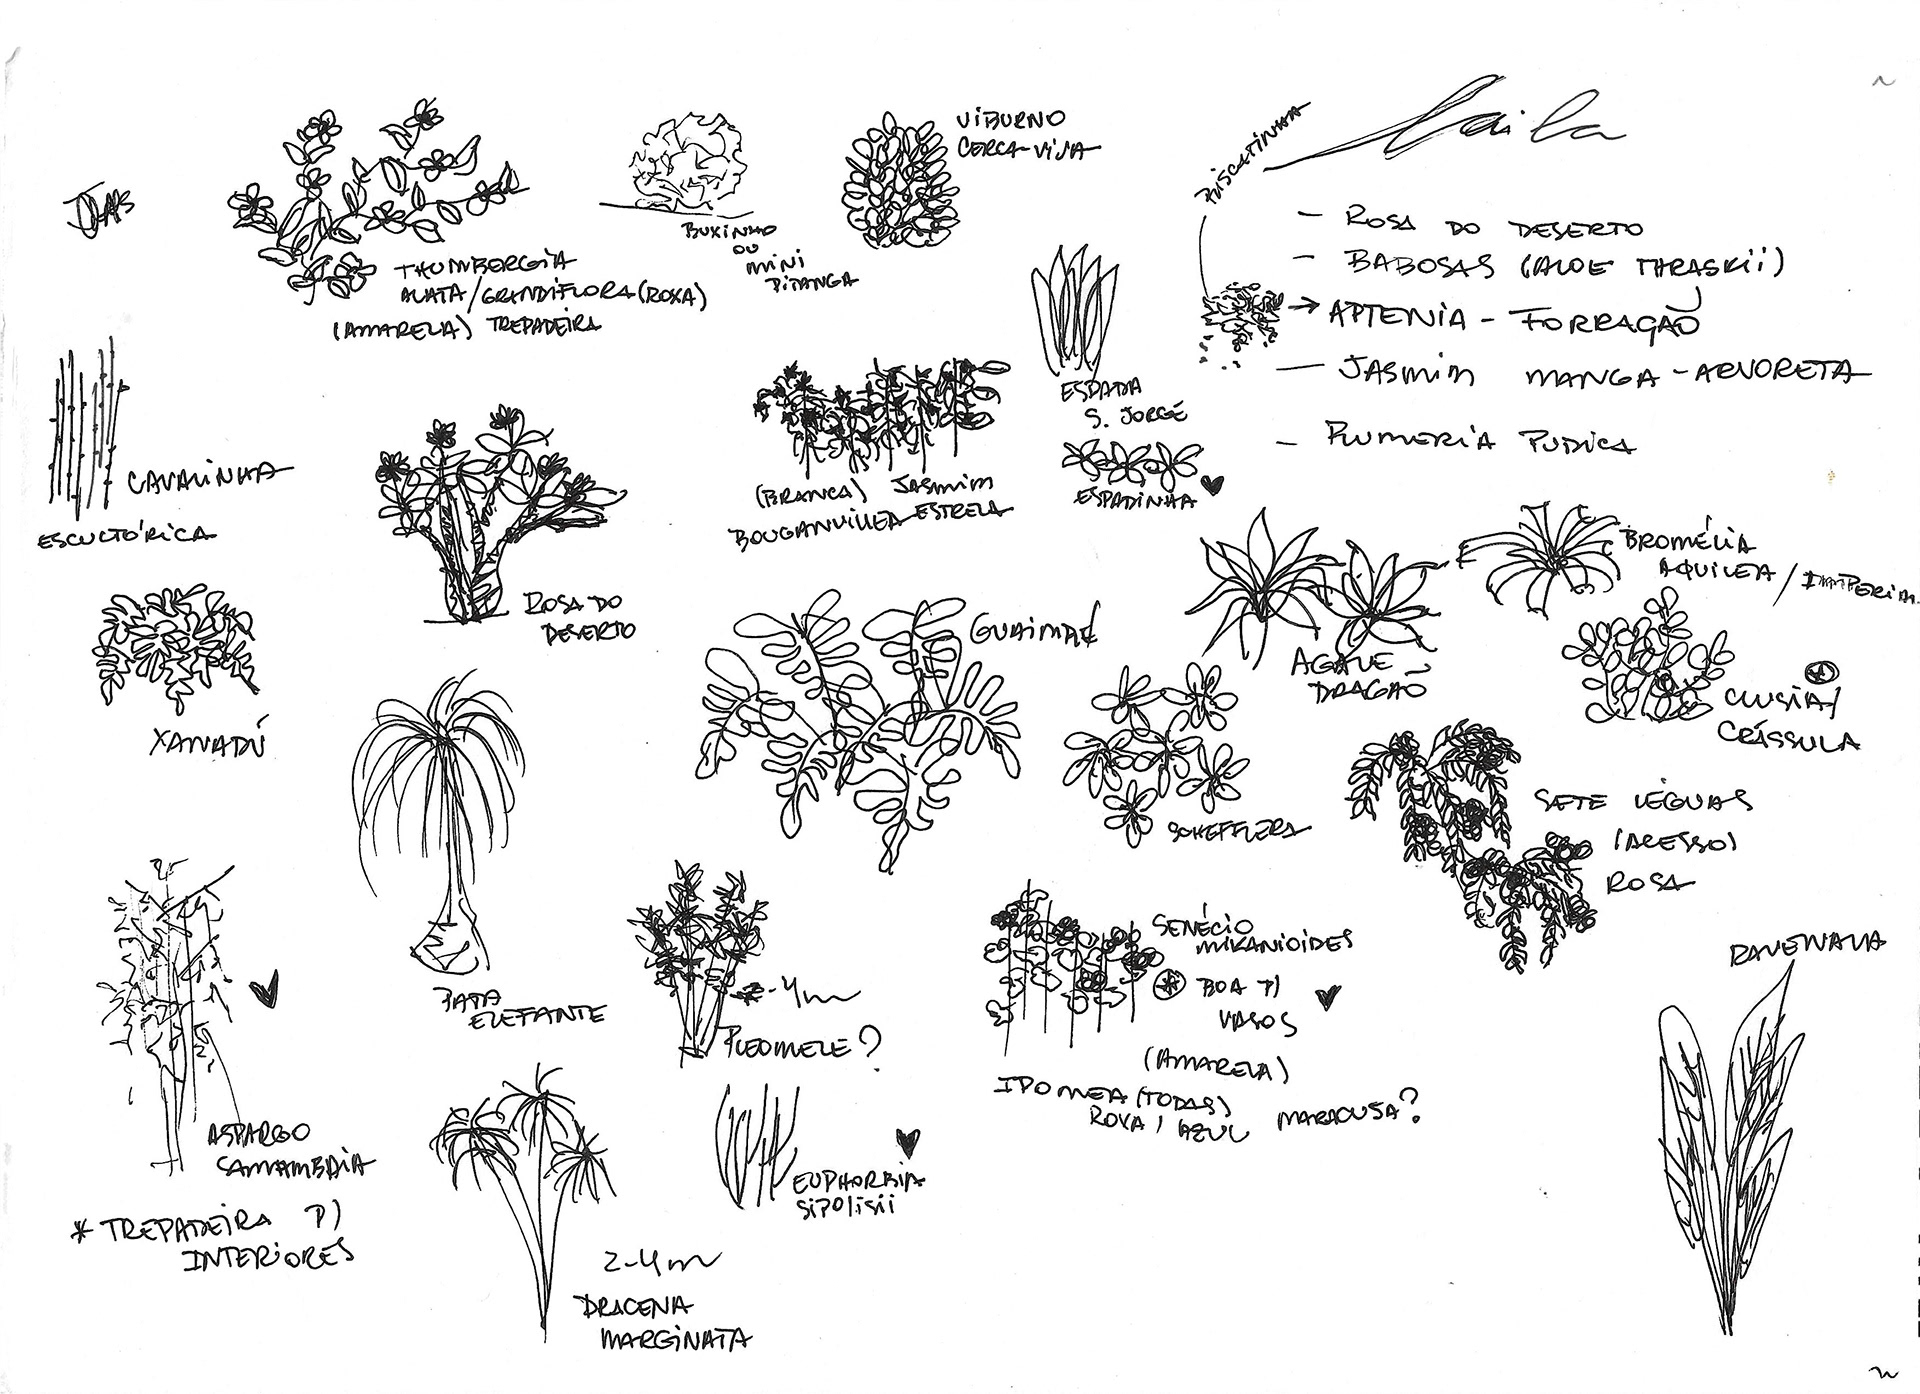 laila
PRISCATINHA
- ROSA DO DESERTO
- BABOSAS (ALOE THRASKII)
→ APTENIA - FORRAÇÃO
- JASMIM MANGA - ARVORETA
- PLUMERIA PUDICA
THUMBERGIA
ALATA / GRANDIFLORA (ROXA)
(AMARELA) TREPADEIRA
BUXINHO
OU
MINI
PITANGA
VIBURNO
CERCA-VIVA
ESPADA
S. JORGE
ESPADINHA
CAVALINHA
ESCULTÓRICA
ROSA DO
DESERTO
(BRANCA) JASMIM
BOUGANVILLEA ESTRELA
BROMÉLIA
AQUILEA / IMPERIAL
AGAVE
DRAGÃO
CLUSIA /
CRÁSSULA
XANADÚ
PATA
ELEFANTE
GUAIMBÉ
SCHEFFLERA
SETE LÉGUAS
(ACESSO)
ROSA
ASPARGO
SAMAMBAIA
* TREPADEIRA P/
INTERIORES
2-4m
DRACENA
MARGINATA
-4m
PLEOMELE?
EUPHORBIA
SIPOLISII
SENÉCIO
MIKANIOIDES
BOA P/
VASOS
(AMARELA)
IPOMEA (TODAS) MARACUJA?
ROXA / AZUL
RAVENALA